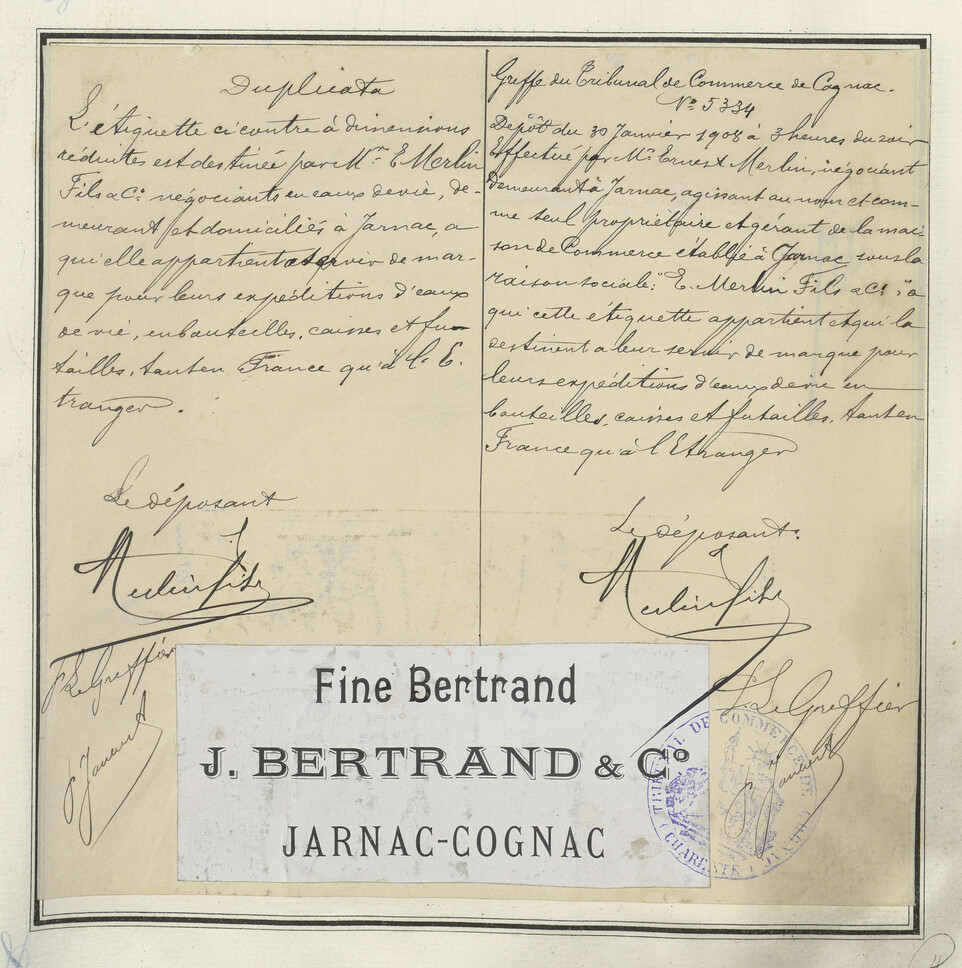 Duplicata
L'étiquette ci contre à dimensions
réduites est destinée par Mr. E. Merlin
Fils & Co. négociants en eaux de vie, de-
meurant et domiciliés à Jarnac, a
qui elle appartient a servir de mar-
que pour leurs expéditions d'eaux
de vie, en bouteilles, caisses et fu-
tailles, tant en France qu'à l'E-
tranger.
Le déposant
Merlin fils
P. Le Greffier
Greffe du Tribunal de Commerce de Cognac.
No. 5334
Dépôt du 30 Janvier 1908 à 3 heures du soir
Effectué par Mr. Ernest Merlin, négociant
demeurant à Jarnac, agissant au nom et com-
me seul propriétaire et gérant de la mai-
son de Commerce établie à Jarnac sous la
raison sociale: "E. Merlin Fils & Co." a
qui cette étiquette appartient et qui la
destinent a leur servir de marque pour
leurs expéditions d'eaux de vie en
bouteilles, caisses et futailles, tant en
France qu'à l'Etranger
Le déposant.
Merlin fils
P. Le Greffier
Fine Bertrand
J. BERTRAND & Co
JARNAC-COGNAC
TRIBUNAL DE COMMERCE DE COGNAC
(CHARENTE)